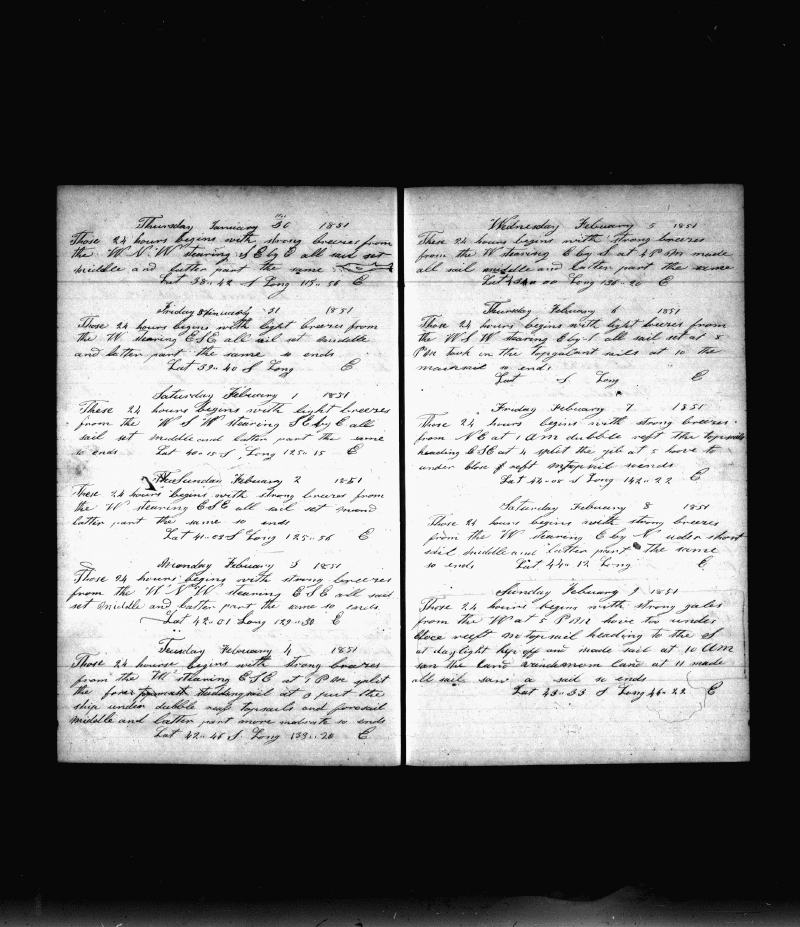 Thursday January 30 1851
Those 24 hours begins with strong breezes from
the W N W stearing S E by E all sail set
middle and latter part the same
Lat 38-42 S Long 115-56 E
Friday 31 1851
Those 24 hours begins with light breezes from
the W stearing E S E all sail set middle
and latter part the same so ends
Lat 39-40 S Long E
Saturday February 1 1851
These 24 hours begins with light breezes
from the W S W stearing S E by E all
sail set middle and latter part the same
so ends Lat 40-15 S Long 125-15 E
Sunday February 2 1851
These 24 hours begins with strong breezes from
the W stearing E S E all sail set
latter part the same so ends
Lat 41-02 S Long 125-56 E
Monday February 3 1851
Those 24 hours begins with strong breezes
from the W N W stearing E S E all sail
set middle and latter part the same so ends
Lat 42-01 Long 129-30 E
Tuesday February 4 1851
Those 24 hourse begins with strong breezes
from the W stearing E S E at 7 P M split
the fore studdingsail at 8 put the
ship under dubble reef topsails and foresail
middle and latter part more so ends
Lat 42-46 S Long 133-20 E
Wednesday February 5 1851
These 24 hours begins with strong breezes
from the W stearing E by S at 4 P M made
all sail middle and latter part the same
Lat 00 Long 136-20 E
Thursday February 6 1851
Those 24 hours begins with light breezes from
the W S W stearing E by S all sail set at 8
P M took in the topgalant sails at 10 the
mainsail so ends
Lat S Long E
Friday February 7 1851
Those 24 hours begins with strong breezes
from N E at 1 A M dubble reft the topsails
heading E S E at 4 split the jib at 5 hove to
under close reft so ends
Lat 42-05 S Long 142-22 E
Saturday February 8 1851
Those 24 hours begins with strong breezes
from the W stearing E by N uder short
sail middle and latter part the same
so ends Lat 44-12 Long E
Sunday February 9 1851
Those 24 hours begins with strong gales
from the W at 5 P M have too under
cloce reeft m topsail heading to the S
at daylight kep off and made sail at 10 A M
saw the land land at 11 made
all sail saw a sail so ends
Lat 43-33 S Long 46-22 E